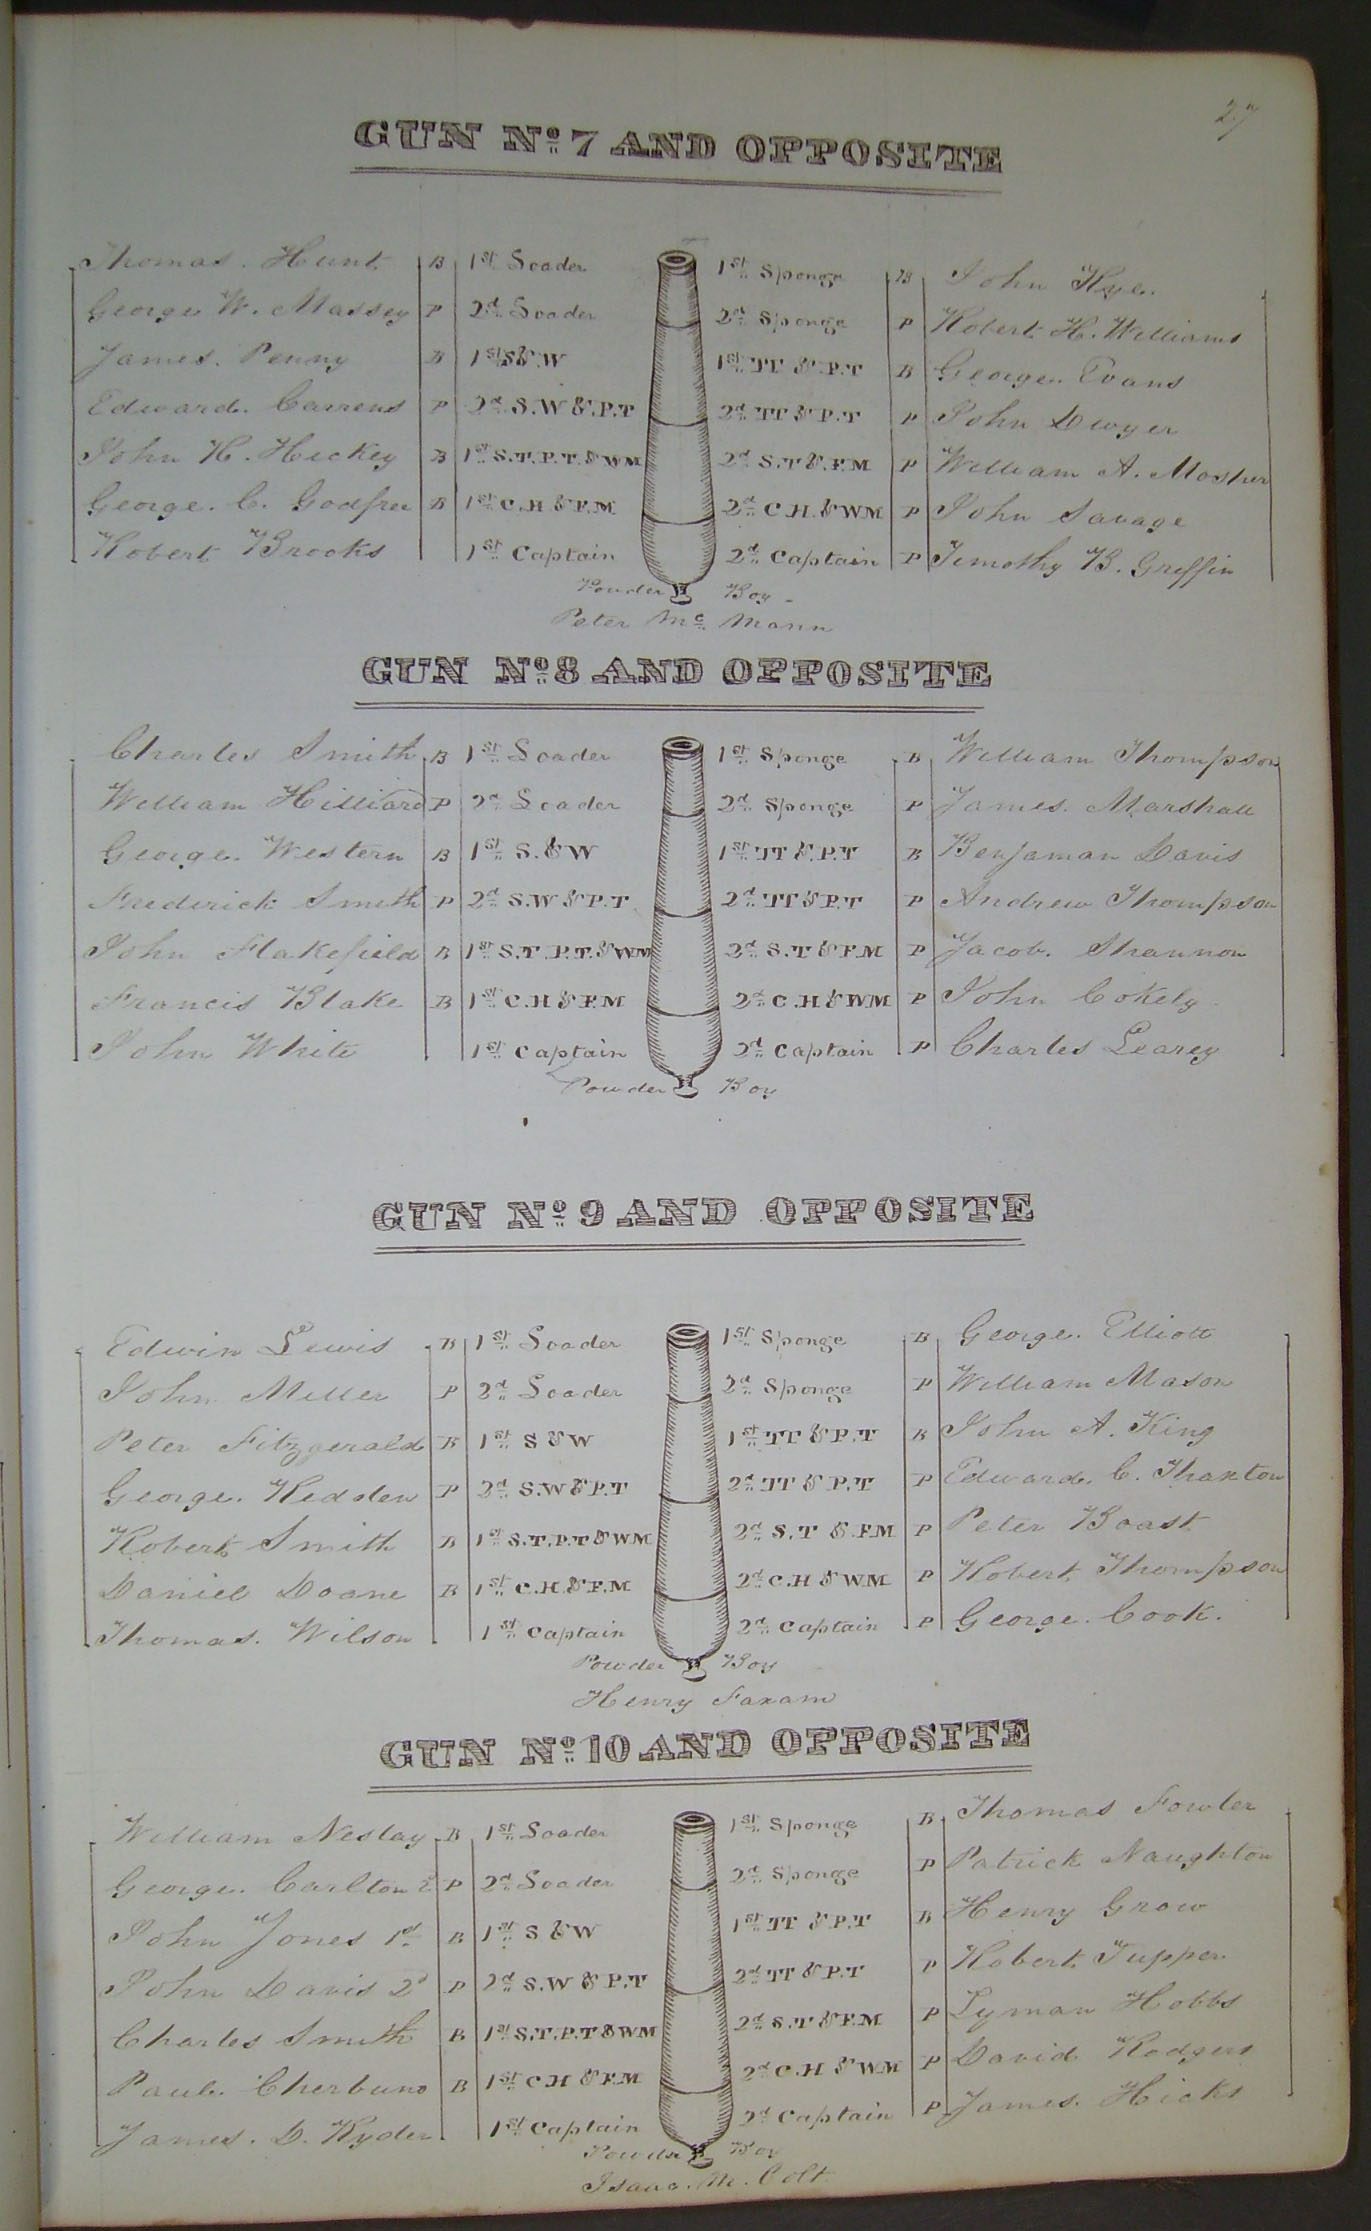 27
GUN No. 7 AND OPPOSITE
Thomas. Hunt B 1st Loader 1st Sponge B John Kye.
George W. Massey P 2d Loader 2d Sponge P Robert H. Williams
James. Penny B 1st S & W 1st TT & P.T B George. Evans
Edward. Carrens P 2d S.W & P.T 2d TT & P.T P John Dwyer
John H. Hickey B 1st S.T.P.T. & WM 2d S.T & F.M P William A. Mosher
George. C. Godfree B 1st C.H & F.M 2d C.H. & WM P John Savage
Robert Brooks 1st Captain 2d Captain P Timothy B. Griffin
Powder Boy
Peter Mc Mann
GUN No. 8 AND OPPOSITE
Charles Smith B 1st Loader 1st Sponge B William Thompson
William Hilliard P 2d Loader 2d Sponge P James. Marshall
George. Western B 1st S. & W 1st TT & P.T B Benjaman Davis
Frederick Smith P 2d S.W & P.T 2d TT & P.T P Andrew Thompson
John Flakefield B 1st S.T P.T. & WM 2d S.T & F.M P Jacob. Shannon
Francis Blake B 1st C.H & F.M 2d C.H & WM P John Cokely
John White 1st Captain 2d Captain P Charles Learey
Powder Boy
GUN No. 9 AND OPPOSITE
Edwin Lewis B 1st Loader 1st Sponge B George. Elliott
John Miller P 2d Loader 2d Sponge P William Mason
Peter Fitzgerald B 1st S & W 1st TT & P.T B John A. King
George. Hedden P 2d S.W & P.T 2d TT & P.T P Edward. C. Thaxton
Robert Smith B 1st S.T.P.T & WM 2d S.T & F.M P Peter Boast
Daniel Doane B 1st C.H & F.M 2d C.H & WM P Robert Thompson
Thomas. Wilson 1st Captain 2d Captain P George. Cook.
Powder Boy
Henry Faxam
GUN No. 10 AND OPPOSITE
William Neslay B 1st Loader 1st Sponge B Thomas Fowler
George. Carlton 2 P 2d Loader 2d Sponge P Patrick Naughton
John Jones 1st B 1st S & W 1st TT & P.T B Henry Grow
John Davis 2d P 2d S.W & P.T 2d TT & P.T P Robert Tupper
Charles Smith B 1st S.T.P.T & WM 2d S.T & F.M P Lyman Hobbs
Paul. Cherbuno B 1st C.H & F.M 2d C.H & WM P David Rodgers
James. D. Ryder 1st Captain 2d Captain P James. Hicks
Powder Boy
Isaac. M. Colt